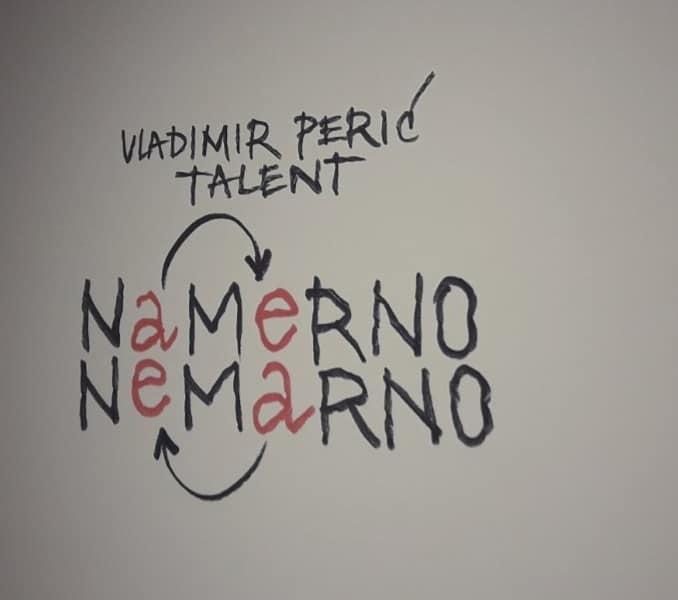 VLADIMIR PERIĆ
TALENT
NaMeRNO
NeMaRNO